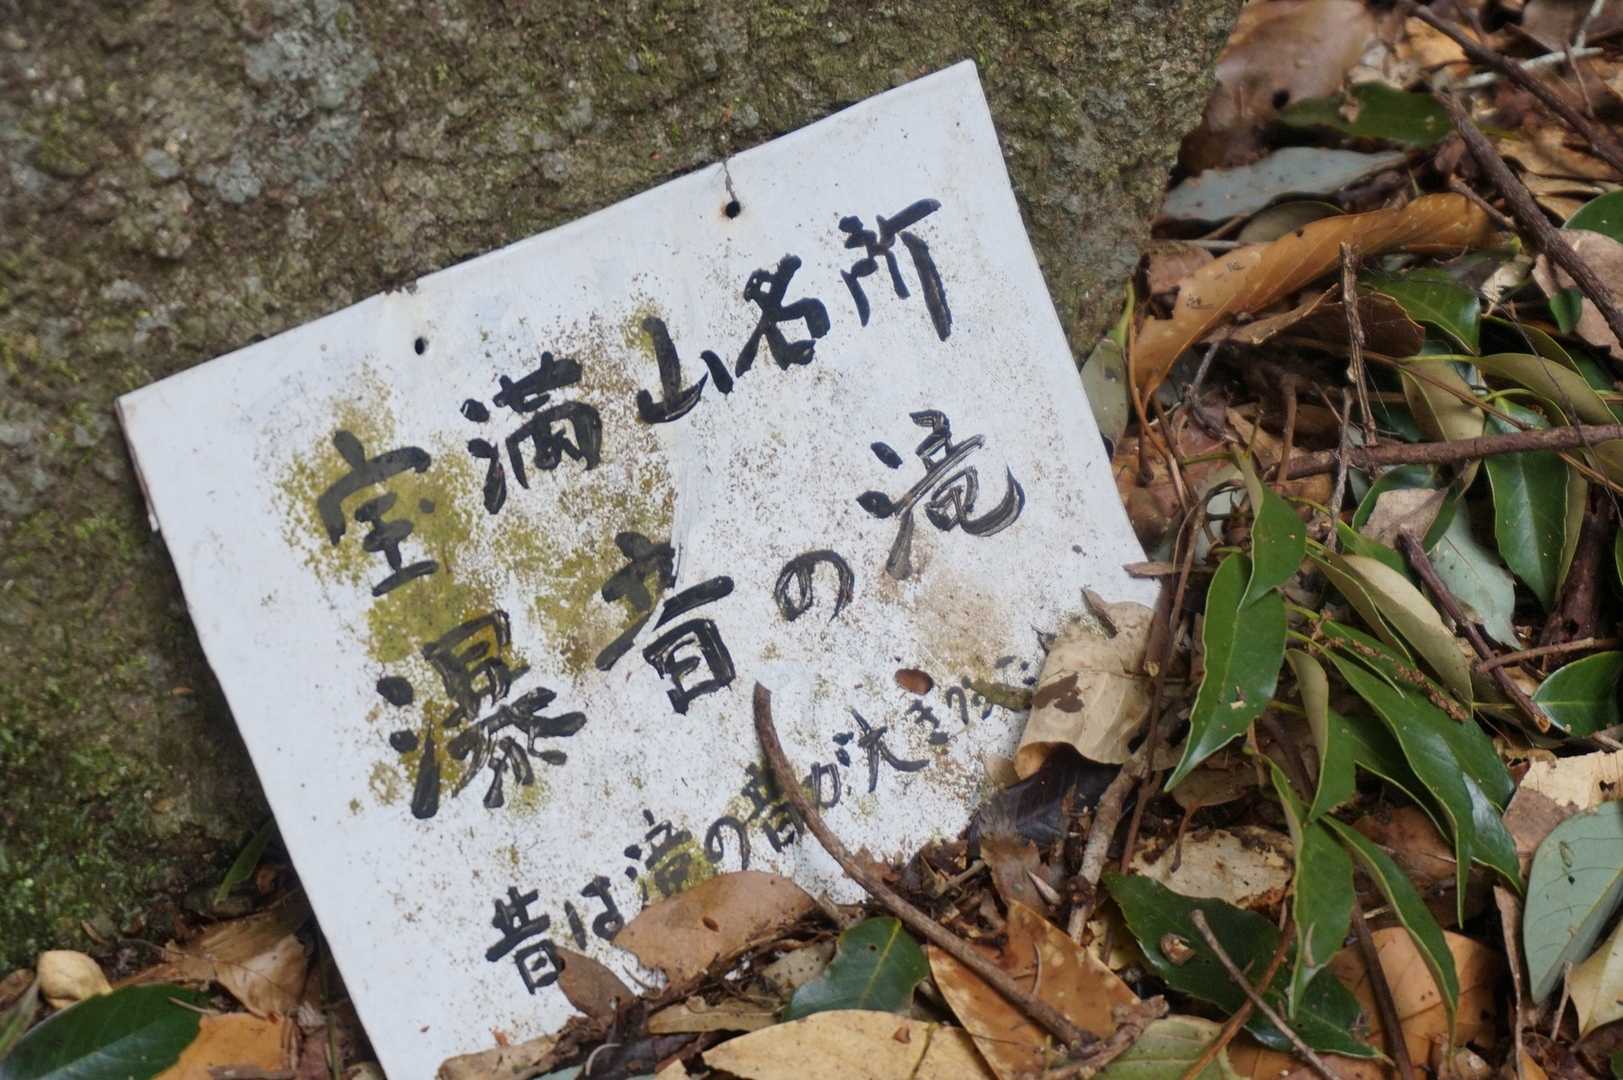 宝満山名所
瀑音の滝
昔は滝の音が大き